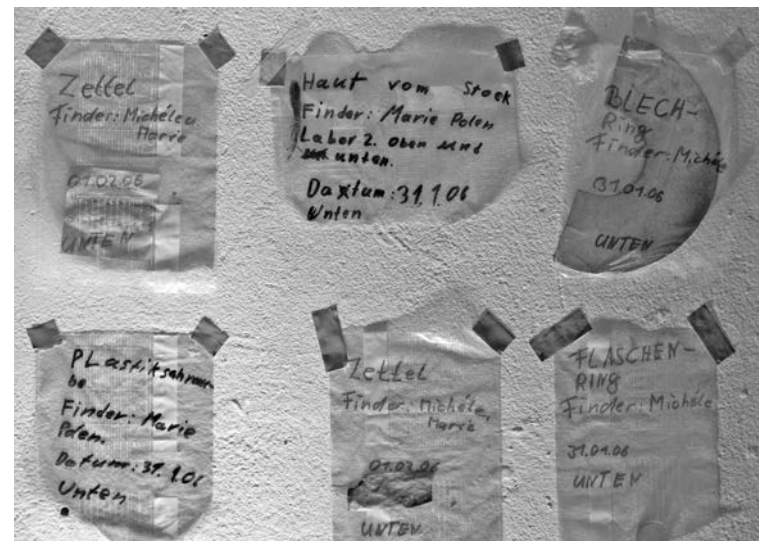 Zettel
Finder: Michéle,
Marie
01.02.06
UNTEN
Haut vom Stock
Finder: Marie Polen
Labor 2. oben und
unten.
Daxtum: 31.1.06
Unten
BLECH-
Ring
Finder: Michéle
31.01.06
UNTEN
PLastikschrau-
be
Finder: Marie
Polen.
Datum: 31.1.06
Unten
Zettel
Finder: Michéle,
Marie
01.02.06
UNTEN
FLASCHEN-
RING
Finder: Michéle
31.01.06
UNTEN